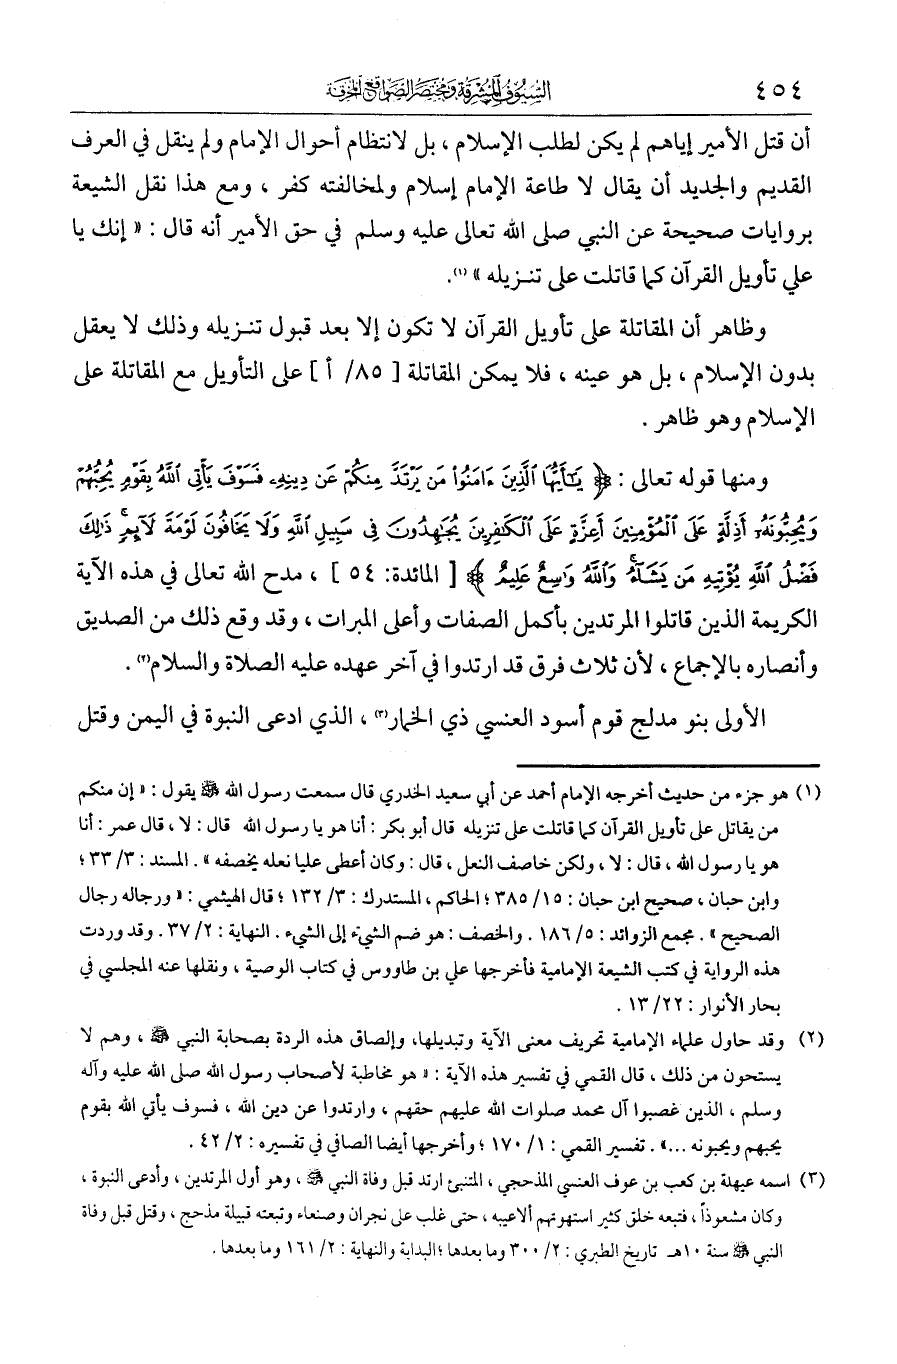 ٤٥٤ السيوف المشرقة ومختصر الصواقع المحرقة
أن قتل الأمير إياهم لم يكن لطلب الإسلام ، بل لانتظام أحوال الإمام ولم ينقل في العرف
القديم والجديد أن يقال لا طاعة الإمام إسلام ولمخالفته كفر ، ومع هذا نقل الشيعة
بروايات صحيحة عن النبي صلى الله تعالى عليه وسلم في حق الأمير أنه قال : « إنك يا
علي تأويل القرآن كما قاتلت على تنـزيله » (١).
وظاهر أن المقاتلة على تأويل القرآن لا تكون إلا بعد قبول تنـزيله وذلك لا يعقل
بدون الإسلام ، بل هو عينه ، فلا يمكن المقاتلة [ ٨٥/ أ ] على التأويل مع المقاتلة على
الإسلام وهو ظاهر .
ومنها قوله تعالى : ﴿ يَٰٓأَيُّهَا ٱلَّذِينَ ءَامَنُوا۟ مَن يَرْتَدَّ مِنكُمْ عَن دِينِهِۦ فَسَوْفَ يَأْتِى ٱللَّهُ بِقَوْمٍ يُحِبُّهُمْ
وَيُحِبُّونَهُۥٓ أَذِلَّةٍ عَلَى ٱلْمُؤْمِنِينَ أَعِزَّةٍ عَلَى ٱلْكَٰفِرِينَ يُجَٰهِدُونَ فِى سَبِيلِ ٱللَّهِ وَلَا يَخَافُونَ لَوْمَةَ لَآئِمٍ ۚ ذَٰلِكَ
فَضْلُ ٱللَّهِ يُؤْتِيهِ مَن يَشَآءُ ۚ وَٱللَّهُ وَٰسِعٌ عَلِيمٌ ﴾ [ المائدة: ٥٤ ] ، مدح الله تعالى في هذه الآية
الكريمة الذين قاتلوا المرتدين بأكمل الصفات وأعلى المبرات ، وقد وقع ذلك من الصديق
وأنصاره بالإجماع ، لأن ثلاث فرق قد ارتدوا في آخر عهده عليه الصلاة والسلام(٢) .
الأولى بنو مدلج قوم أسود العنسي ذي الخمار(٣) ، الذي ادعى النبوة في اليمن وقتل
(١) هو جزء من حديث أخرجه الإمام أحمد عن أبي سعيد الخدري قال سمعت رسول الله ﷺ يقول : « إن منكم
من يقاتل على تأويل القرآن كما قاتلت على تنزيله قال أبو بكر : أنا هو يا رسول الله قال : لا ، قال عمر : أنا
هو يا رسول الله ، قال : لا ، ولكن خاصف النعل ، قال : وكان أعطى عليا نعله يخصفه » . المسند : ٣/ ٣٣ ؛
وابن حبان ، صحيح ابن حبان : ١٥/ ٣٨٥ ؛ الحاكم ، المستدرك : ٣/ ١٣٢ ؛ قال الهيثمي : « ورجاله رجال
الصحيح » . مجمع الزوائد : ٥/ ١٨٦ . والخصف : هو ضم الشيء إلى الشيء . النهاية : ٢/ ٣٧ . وقد وردت
هذه الرواية في كتب الشيعة الإمامية فأخرجها علي بن طاووس في كتاب الوصية ، ونقلها عنه المجلسي في
بحار الأنوار : ٢٢/ ١٣ .
(٢) وقد حاول علماء الإمامية تحريف معنى الآية وتبديلها، وإلصاق هذه الردة بصحابة النبي ﷺ ، وهم لا
يستحون من ذلك ، قال القمي في تفسير هذه الآية : « هو مخاطبة لأصحاب رسول الله صلى الله عليه وآله
وسلم ، الذين غصبوا آل محمد صلوات الله عليهم حقهم ، وارتدوا عن دين الله ، فسوف يأتي الله بقوم
يحبهم ويحبونه ...» . تفسير القمي : ١/ ١٧٠ ؛ وأخرجها أيضا الصافي في تفسيره : ٢/ ٤٢ .
(٣) اسمه عيهلة بن كعب بن عوف العنسي المذحجي ، المتنبئ ارتد قبل وفاة النبي ﷺ ، وهو أول المرتدين ، وأدعى النبوة ،
وكان مشعوذاً ، فتبعه خلق كثير استهوتهم ألاعيبه ، حتى غلب على نجران وصنعاء وتبعته قبيلة مذحج ، وقتل قبل وفاة
النبي ﷺ سنة ١٠هـ تاريخ الطبري : ٢/ ٣٠٠ وما بعدها ؛ البداية والنهاية : ٢/ ١٦١ وما بعدها .